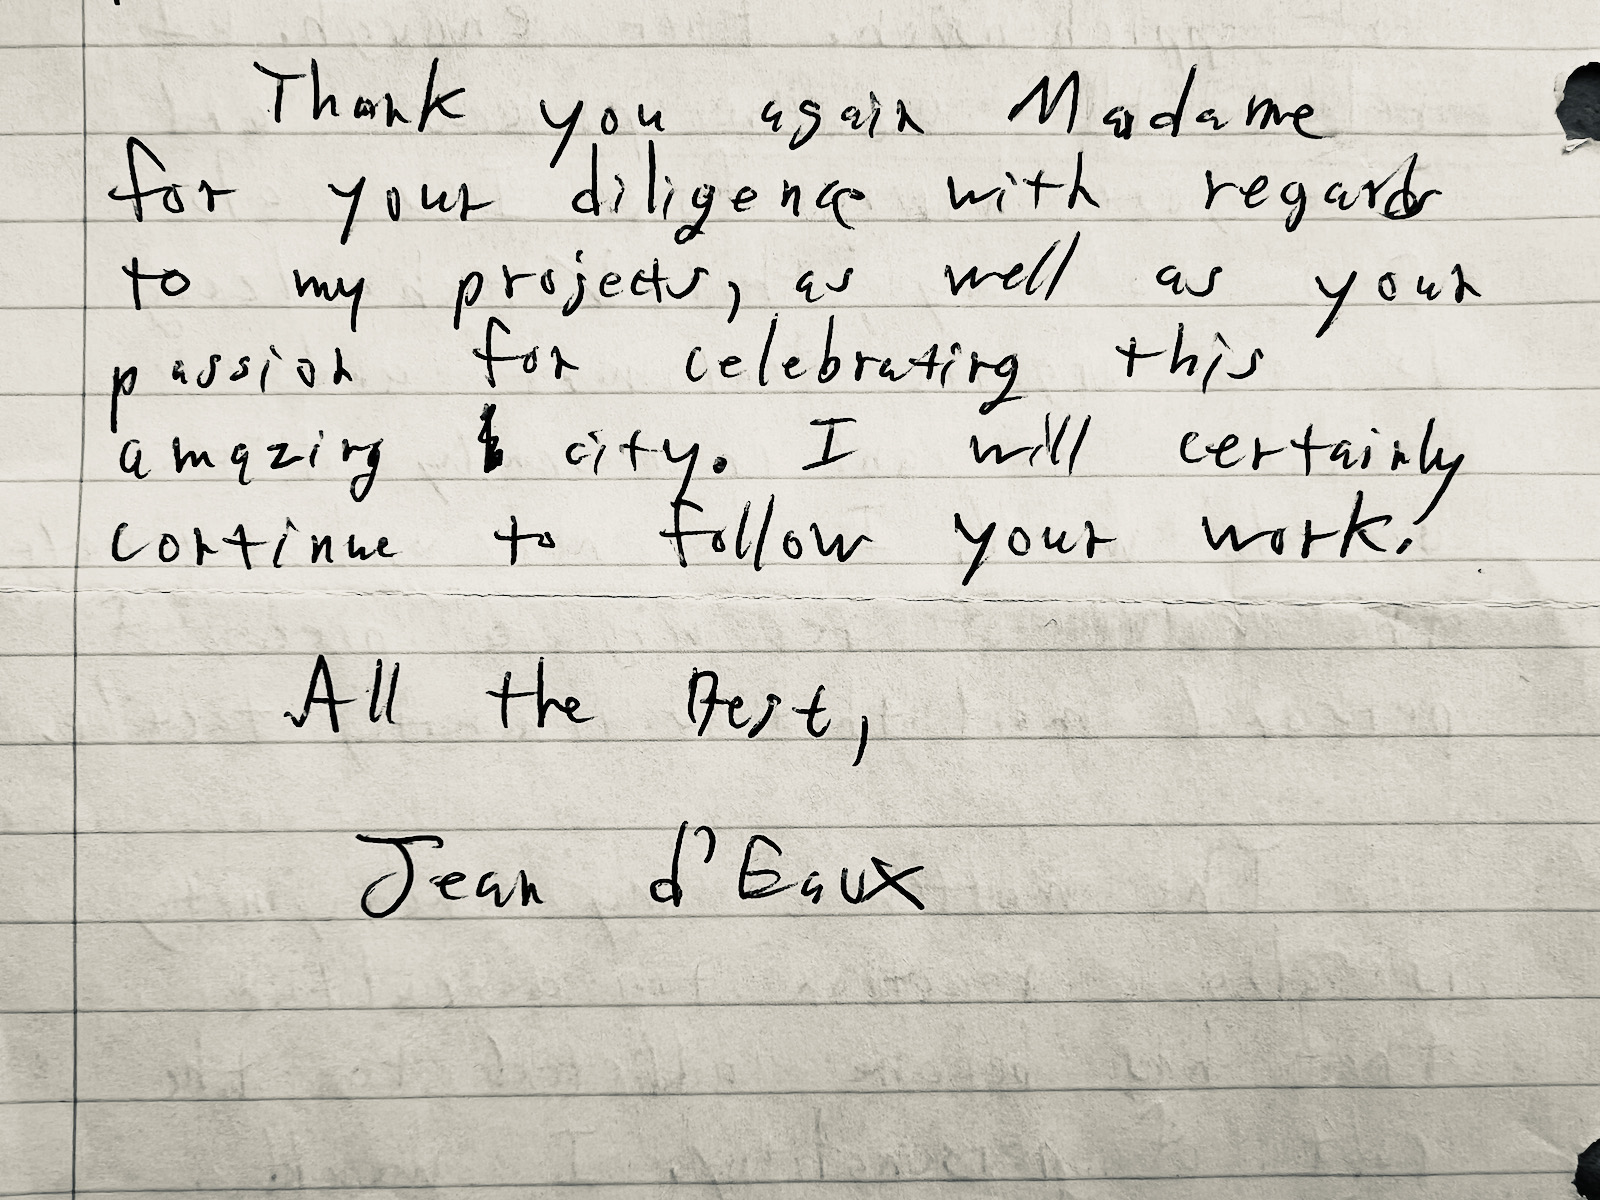 Thank you again Madame
for your diligence with regards
to my projects, as well as your
passion for celebrating this
amazing city. I will certainly
continue to follow your work.
All the Best,
Jean d'Eaux